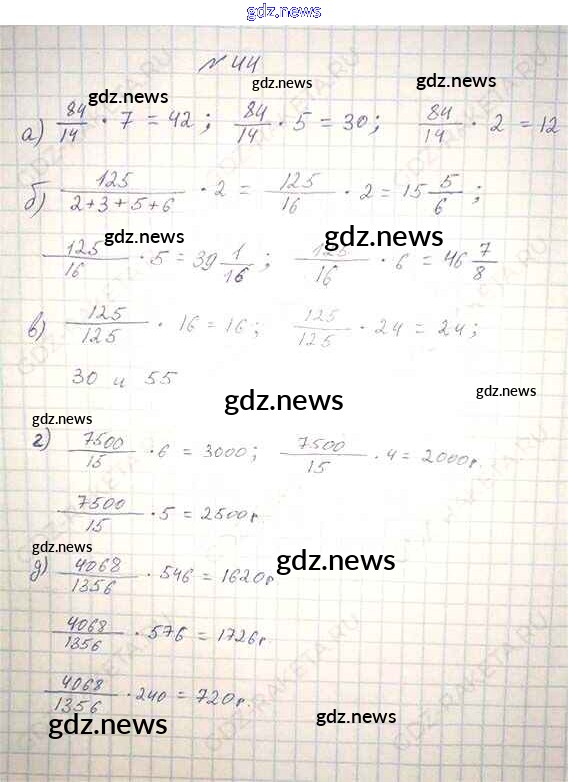 gdz.news
№ 44
gdz.news gdz.news gdz.news
а) 84/14 · 7 = 42; 84/14 · 5 = 30; 84/14 · 2 = 12
б) 125/(2+3+5+6) · 2 = 125/16 · 2 = 15 5/6;
gdz.news gdz.news
125/16 · 5 = 39 1/16; 125/16 · 6 = 46 7/8
в) 125/125 · 16 = 16; 125/125 · 24 = 24;
30 и 55
gdz.news gdz.news
gdz.news
г) 7500/15 · 6 = 3000; 7500/15 · 4 = 2000р.
7500/15 · 5 = 2500р.
gdz.news gdz.news
д) 4068/1356 · 546 = 1620р
4068/1356 · 576 = 1726р
4068/1356 · 240 = 720р.
gdz.news gdz.news
GDZ-RAKETA.RU